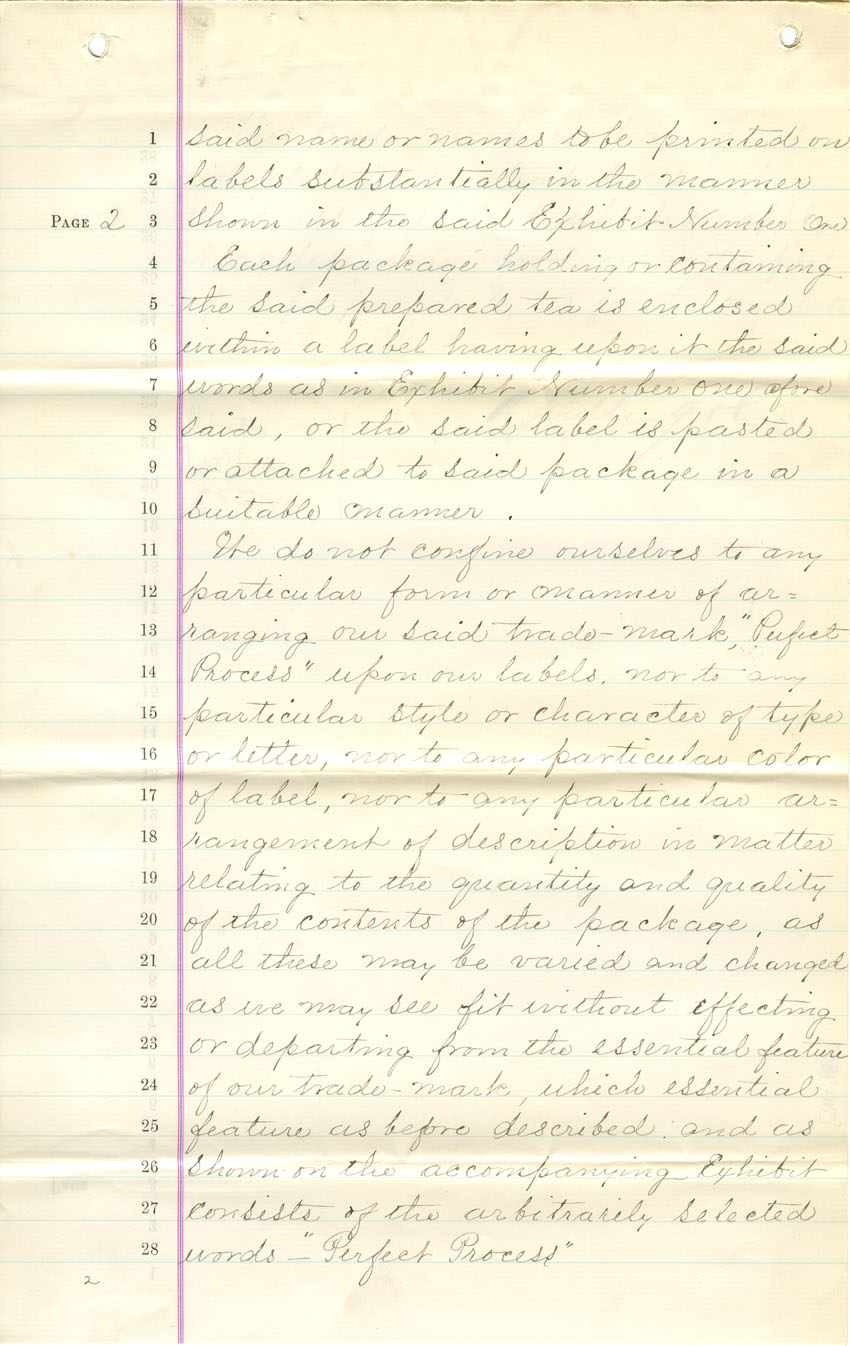 1 said name or names to be printed on
2 labels substantially in the manner
PAGE 2 3 shown in the said Exhibit Number One
4 Each package holding or containing
5 the said prepared tea is enclosed
6 within a label having upon it the said
7 words as in Exhibit Number One afore
8 said, or the said label is pasted
9 or attached to said package in a
10 suitable manner.
11 We do not confine ourselves to any
12 particular form or manner of ar=
13 ranging our said trade-mark, "Perfect
14 Process" upon our labels, nor to any
15 particular style or character of type
16 or letter, nor to any particular color
17 of label, nor to any particular ar=
18 rangement of description in matter
19 relating to the quantity and quality
20 of the contents of the package, as
21 all these may be varied and changed
22 as we may see fit without effecting
23 or departing from the essential feature
24 of our trade-mark, which essential
25 feature as before described. and as
26 shown on the accompanying Exhibit
27 consists of the arbitrarily selected
28 words - "Perfect Process"
2